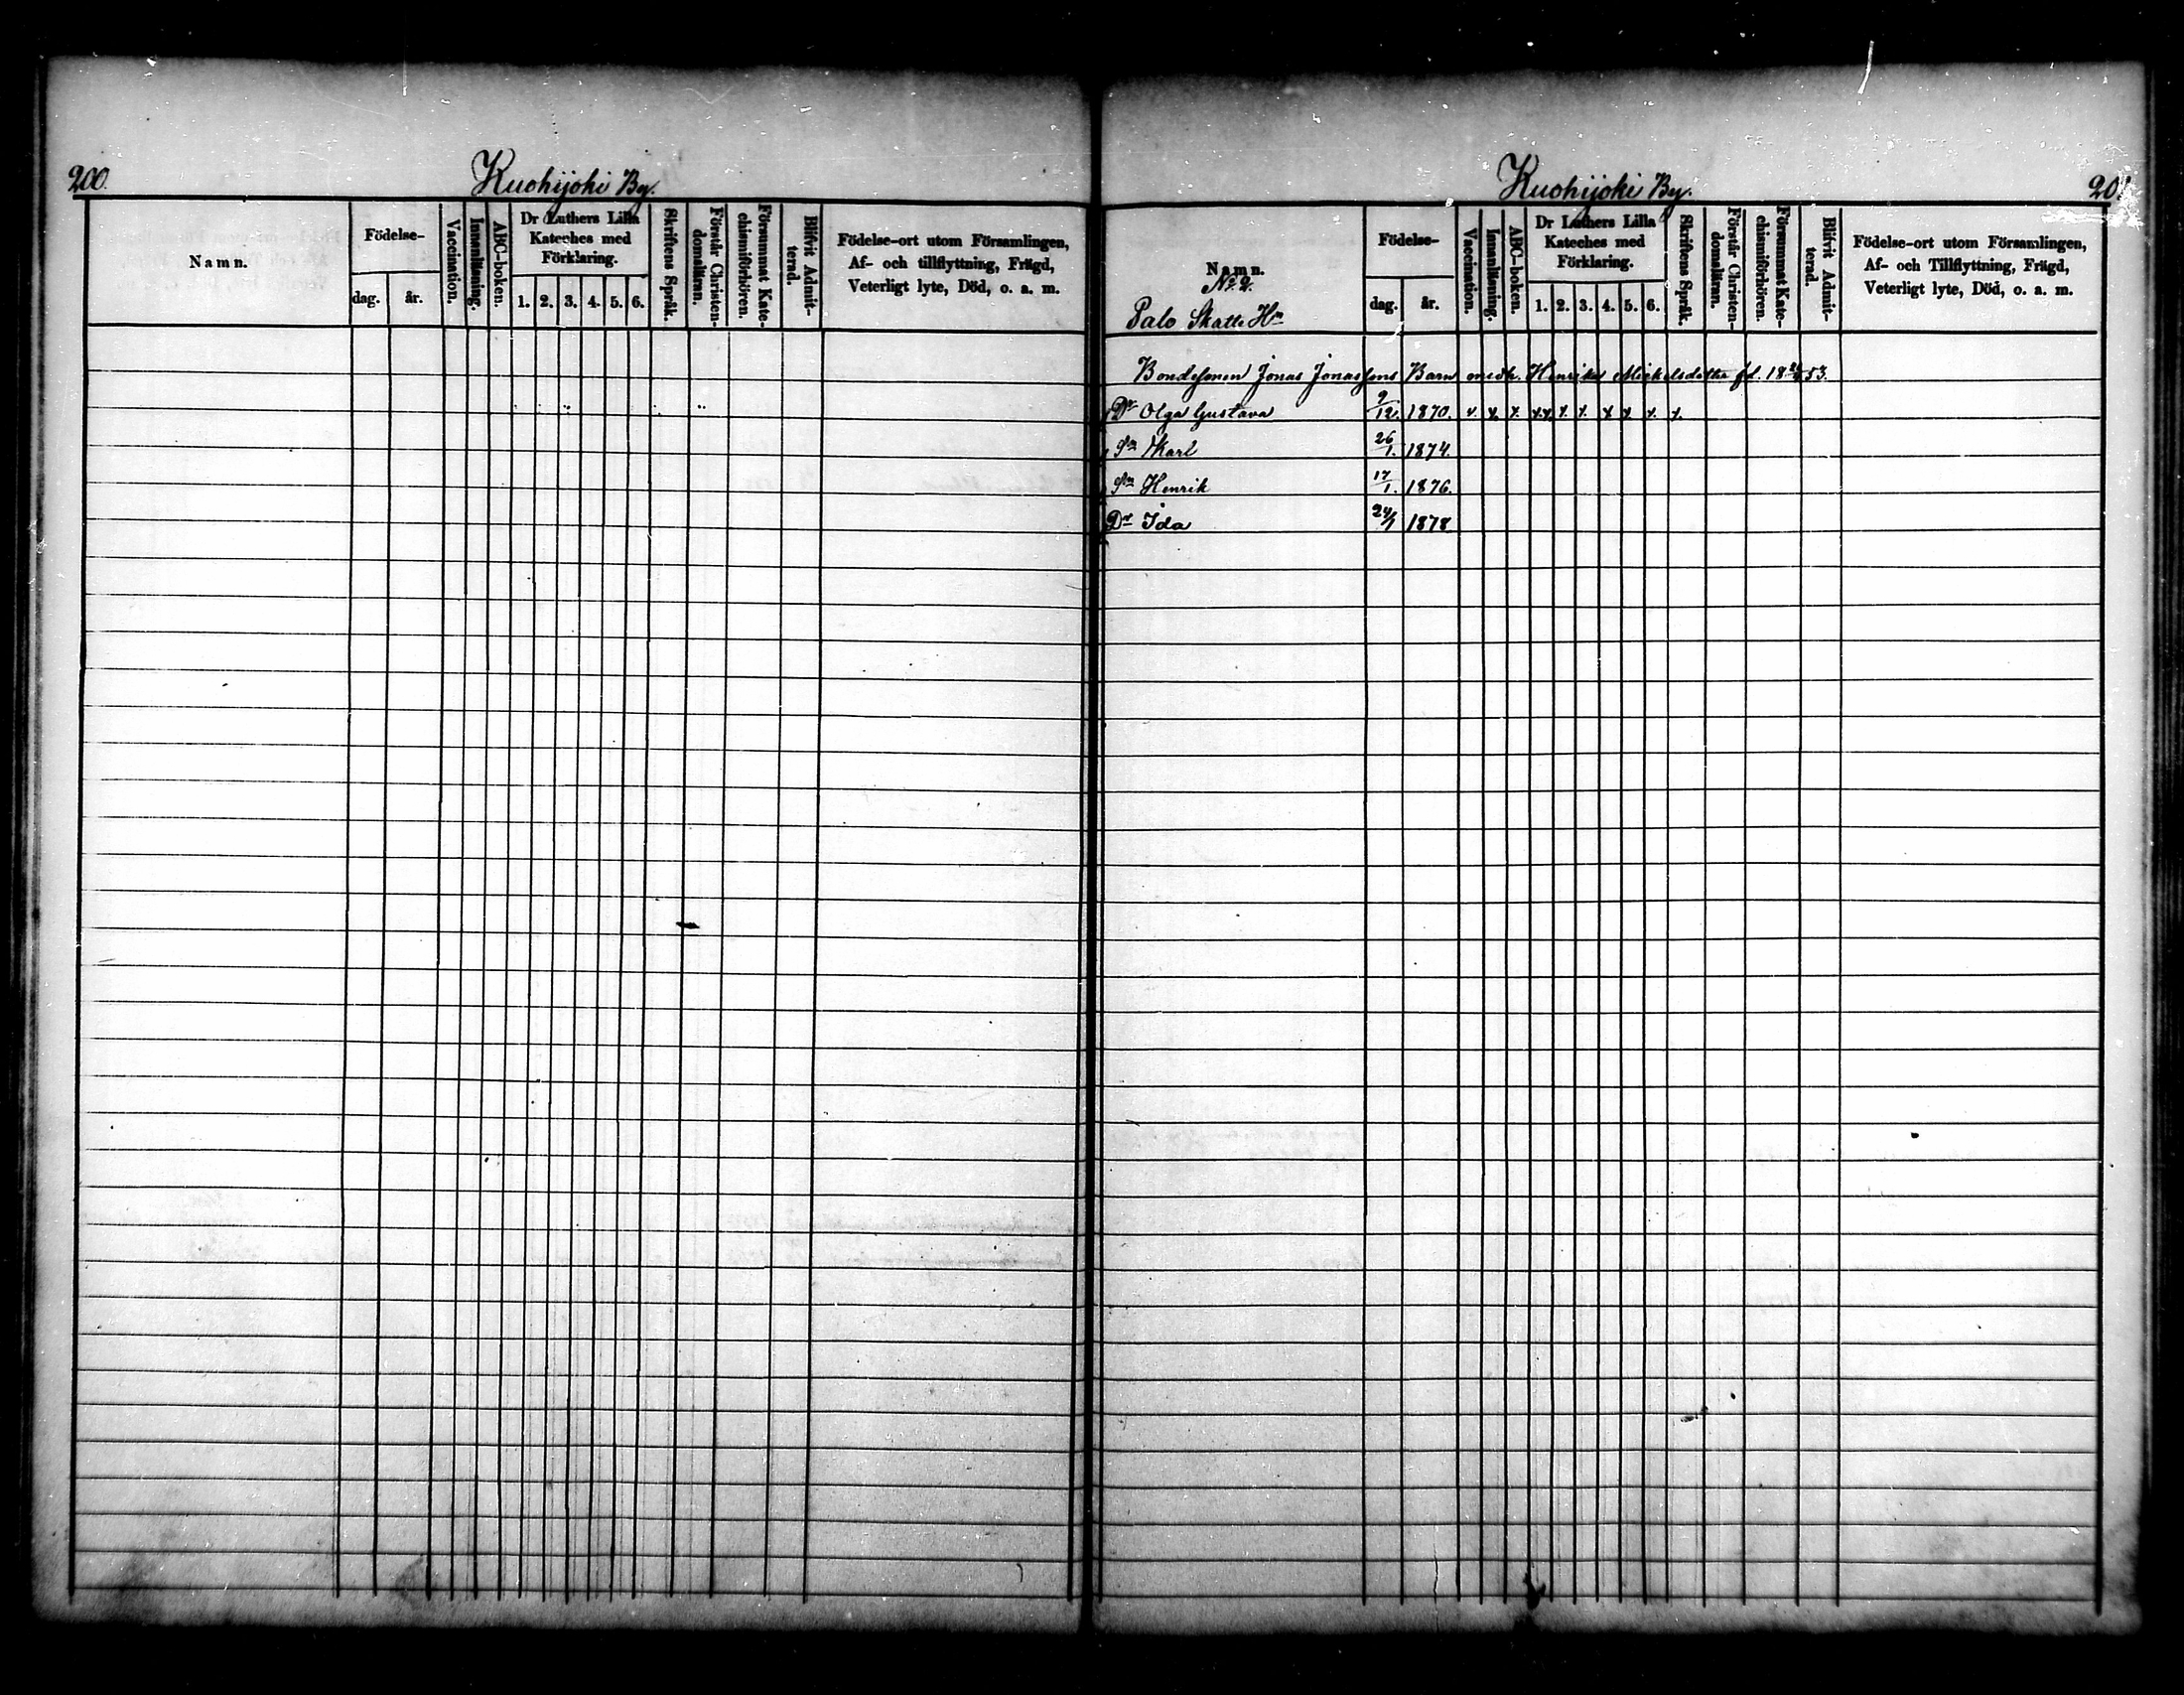 200.
Kuohijoki By.
Namn.
Födelse-
dag.
år.
Vaccination.
Innanläsning.
ABC-boken.
Dr Luthers Lilla
Kateches med
Förklaring.
1. 2. 3. 4. 5. 6.
Skriftens Språk.
Förstår Christen-
domsläran.
Försummat Kate-
chismiförhören.
Blifvit Admit-
terad.
Födelse-ort utom Församlingen,
Af- och tillflyttning, Frägd,
Veterligt lyte, Död, o. a. m.
Kuohijoki By.
201
Namn.
No 2.
Palo Skatte Hn
Födelse-
dag.
år.
Vaccination.
Innanläsning.
ABC-boken.
Dr Luthers Lilla
Kateches med
Förklaring.
1. 2. 3. 4. 5. 6.
Skriftens Språk.
Förstår Christen-
domsläran.
Försummat Kate-
chismiförhören.
Blifvit Admit-
terad.
Födelse-ort utom Församlingen,
Af- och Tillflyttning, Frägd,
Veterligt lyte, Död, o. a. m.
Bondesonen Jonas Jonassons Barn med h. Henrika Mickelsdotter fd. 18 53.
Dr Olga Gustava 9/12. 1870. x x x xx x x x x x x
Sn Karl 26/1. 1874.
Sn Henrik 17/1. 1876.
Dr Ida 24/1 1878